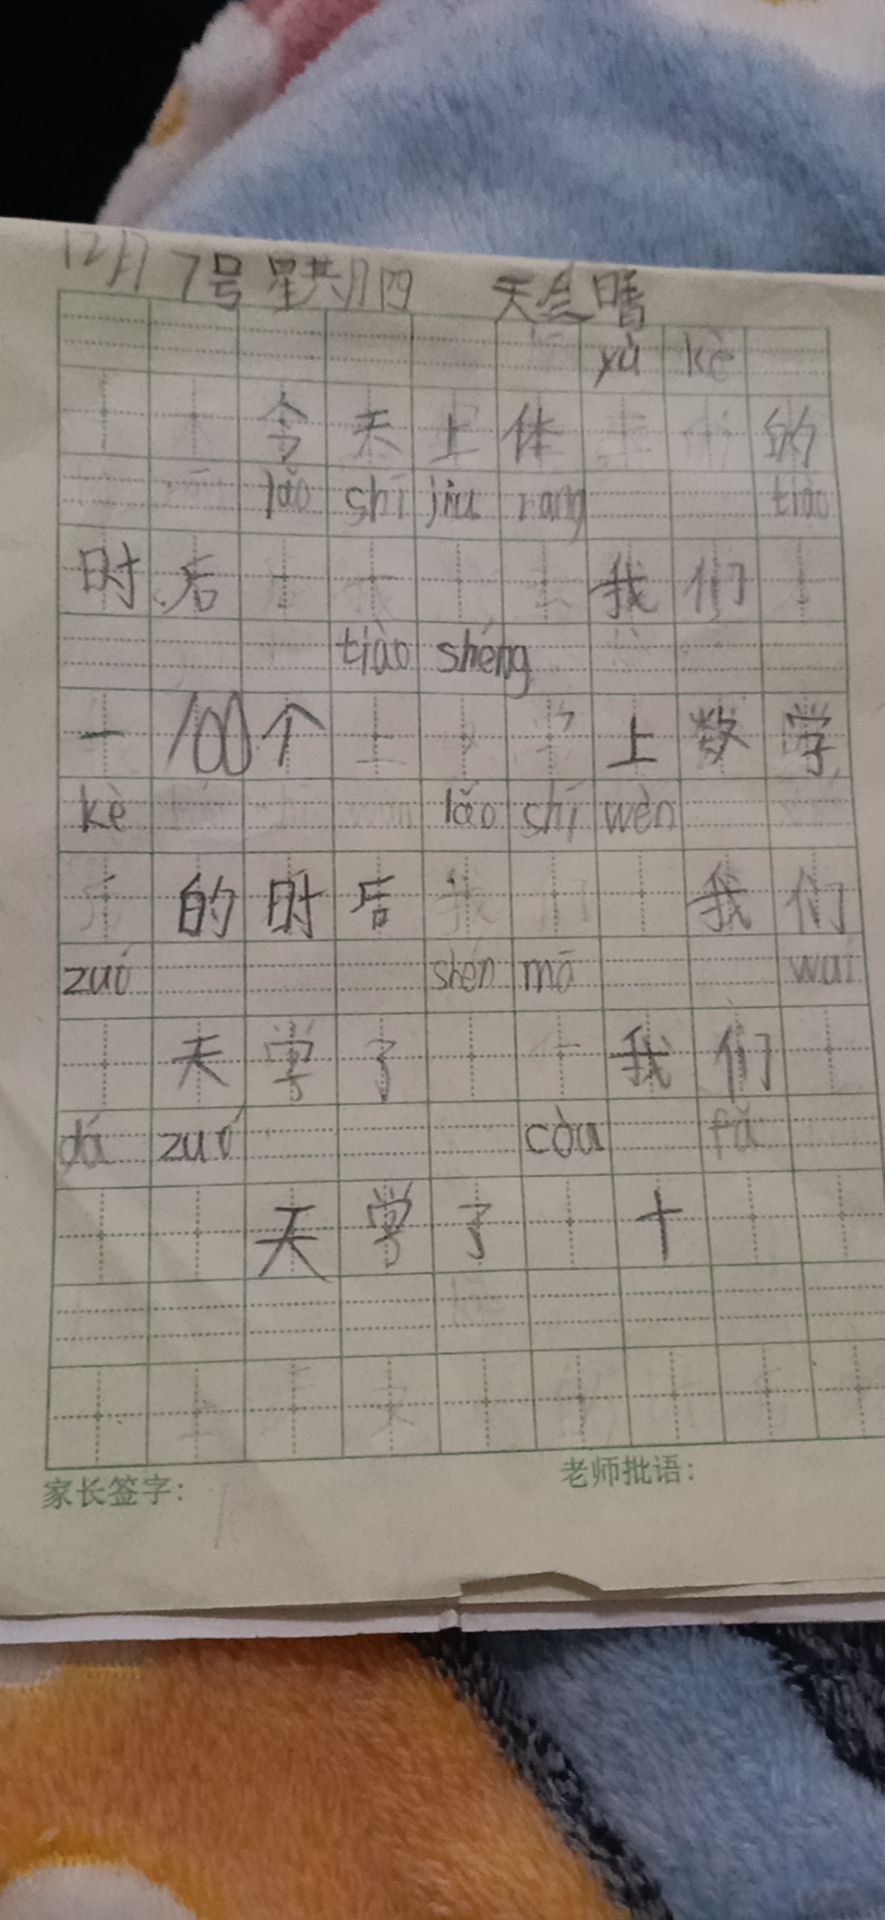 12月7号星期四 天气晴
yù kè
今天上体 的
lǎo shī jiù rang tiào
时后 我们
tiào shéng
一100个 上数学
kè lǎo shī wèn
的时后 我们
zuó shén mō wǒ
天学了 我们
dá zuó còu fǎ
天学了 十
家长签字: 老师批语: